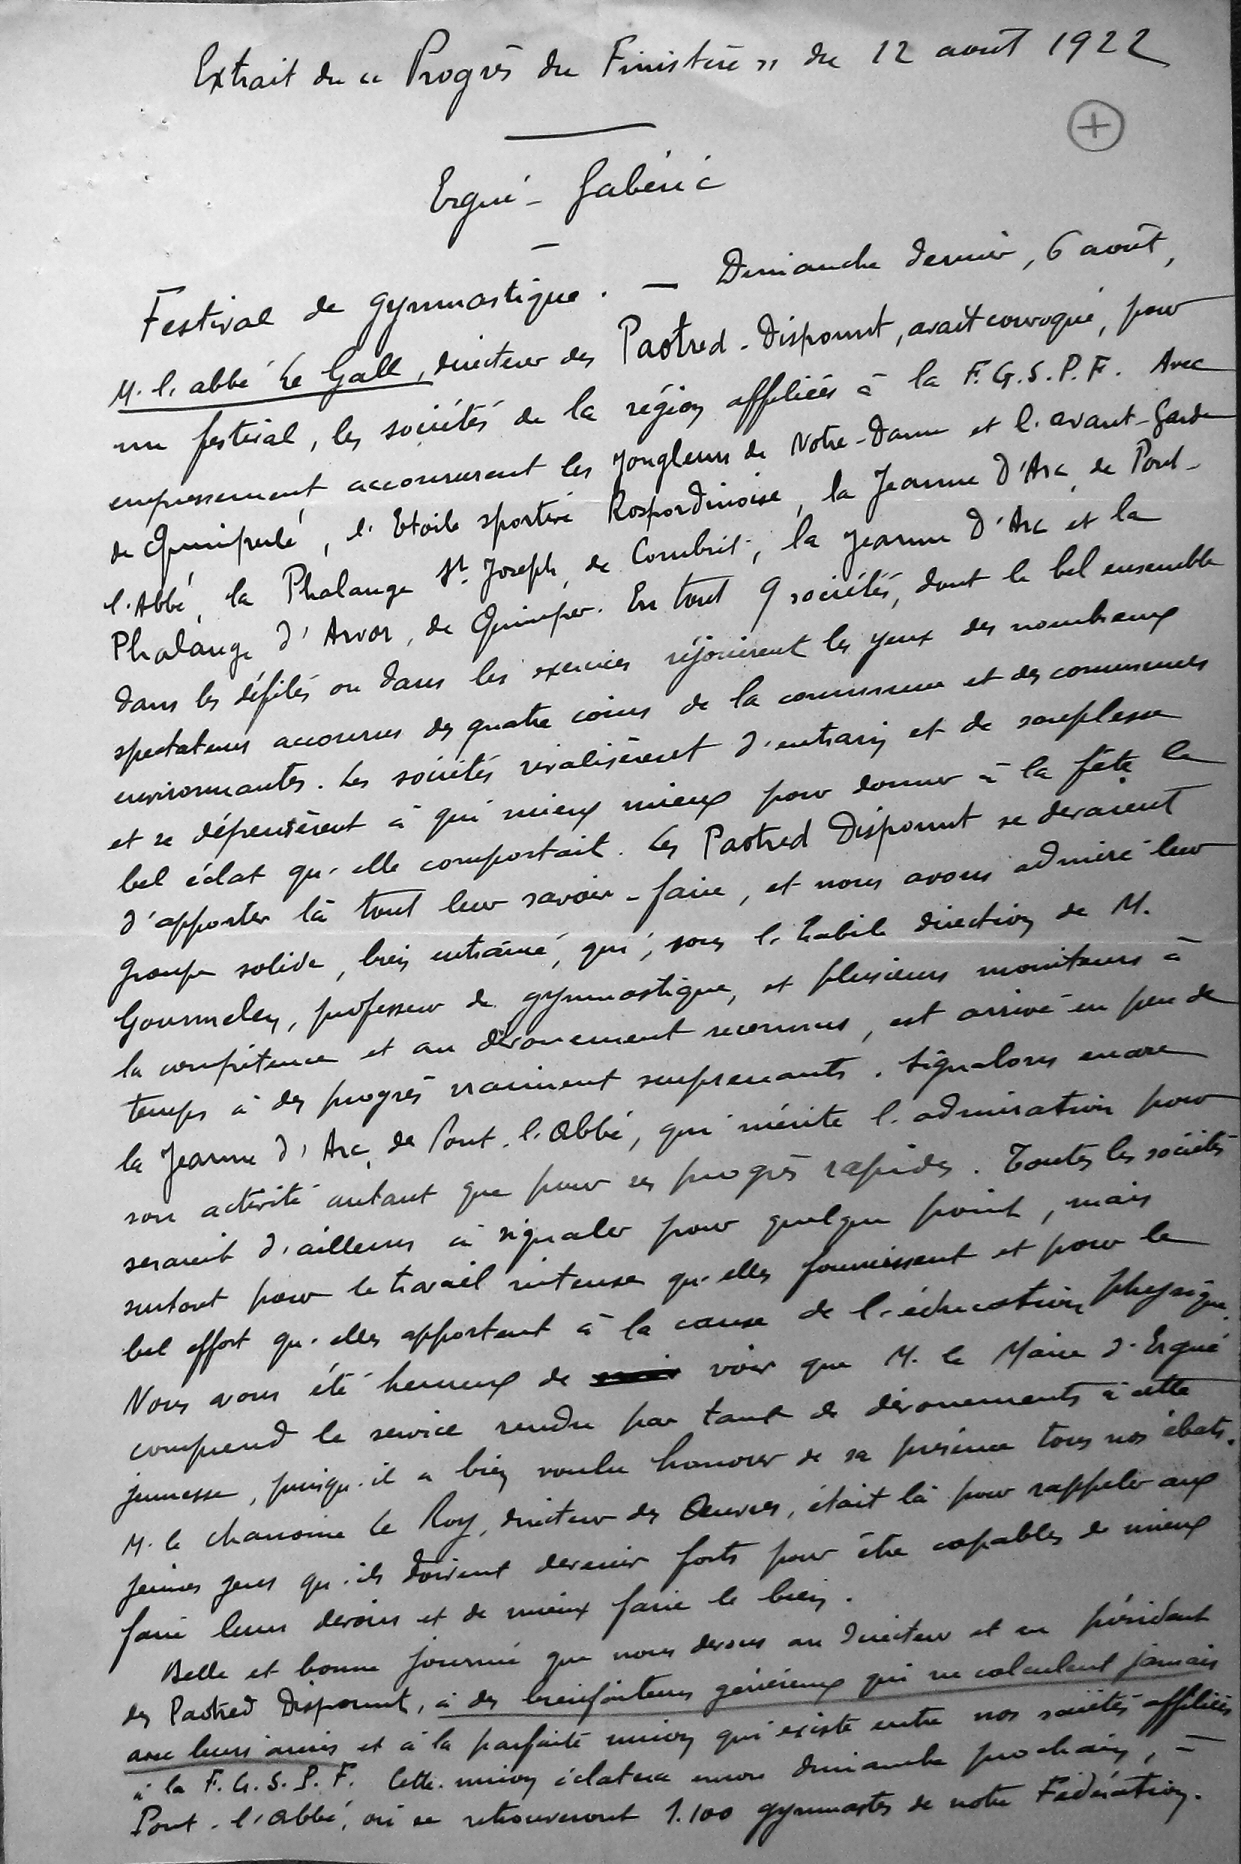 Extrait du « Progrès du Finistère » du 12 août 1922
+
Ergué-Gabéric
Festival de gymnastique. — Dimanche dernier, 6 août,
M. l'abbé Le Gall, directeur des Paotred-Dispount, avait convoqué, pour
un festival, les sociétés de la région affiliées à la F.G.S.P.F. Avec
empressement, accoururent les Jongleurs de Notre-Dame et l'avant-Garde
de Quimperlé, l'Etoile sportive Rospordinoise, la Jeanne d'Arc, de Pont-
l'Abbé, la Phalange St. Joseph, de Combrit, la Jeanne d'Arc et la
Phalange d'Arvor, de Quimper. En tout 9 sociétés, dont le bel ensemble
dans les défilés ou dans les exercices réjouirent les yeux des nombreux
spectateurs accourus des quatre coins de la commune et des communes
environnantes. Les sociétés rivalisèrent d'entrain et de souplesse
et se dépensèrent à qui mieux mieux pour donner à la fête le
bel éclat qu'elle comportait. Les Paotred Dispount se devaient
d'apporter là tout leur savoir-faire, et nous avons admiré leur
groupe solide, bien entraîné, qui, sous l'habile direction de M.
Gourmelen, professeur de gymnastique, et plusieurs moniteurs à
la compétence et au dévouement reconnus, est arrivé en peu de
temps à des progrès vraiment surprenants. Signalons encore
la Jeanne d'Arc, de Pont-l'Abbé, qui mérite l'admiration pour
son activité autant que pour ses progrès rapides. Toutes les sociétés
seraient d'ailleurs à signaler pour quelque point, mais
surtout pour le travail intense qu'elles fournissent et pour le
bel effort qu'elles apportent à la cause de l'éducation physique.
Nous avons été heureux de voir que M. le Maire d'Ergué
comprend le service rendu par tant de dévouements à cette
jeunesse, puisqu'il a bien voulu honorer de sa présence tous nos ébats.
M. le chanoine Le Roy, directeur des Œuvres, était là pour rappeler aux
jeunes gens qu'ils doivent devenir forts pour être capables de mieux
faire leurs devoirs et de mieux faire le bien.
Belle et bonne journée que nous devons au directeur et au président
des Paotred Dispount, à des bienfaiteurs généreux qui ne calculent jamais
avec leurs amis et à la parfaite union qui existe entre nos sociétés affiliées
à la F.G.S.P.F. Cette union éclatera encore dimanche prochain, à
Pont-l'Abbé, où se retrouveront 1.100 gymnastes de notre Fédération.